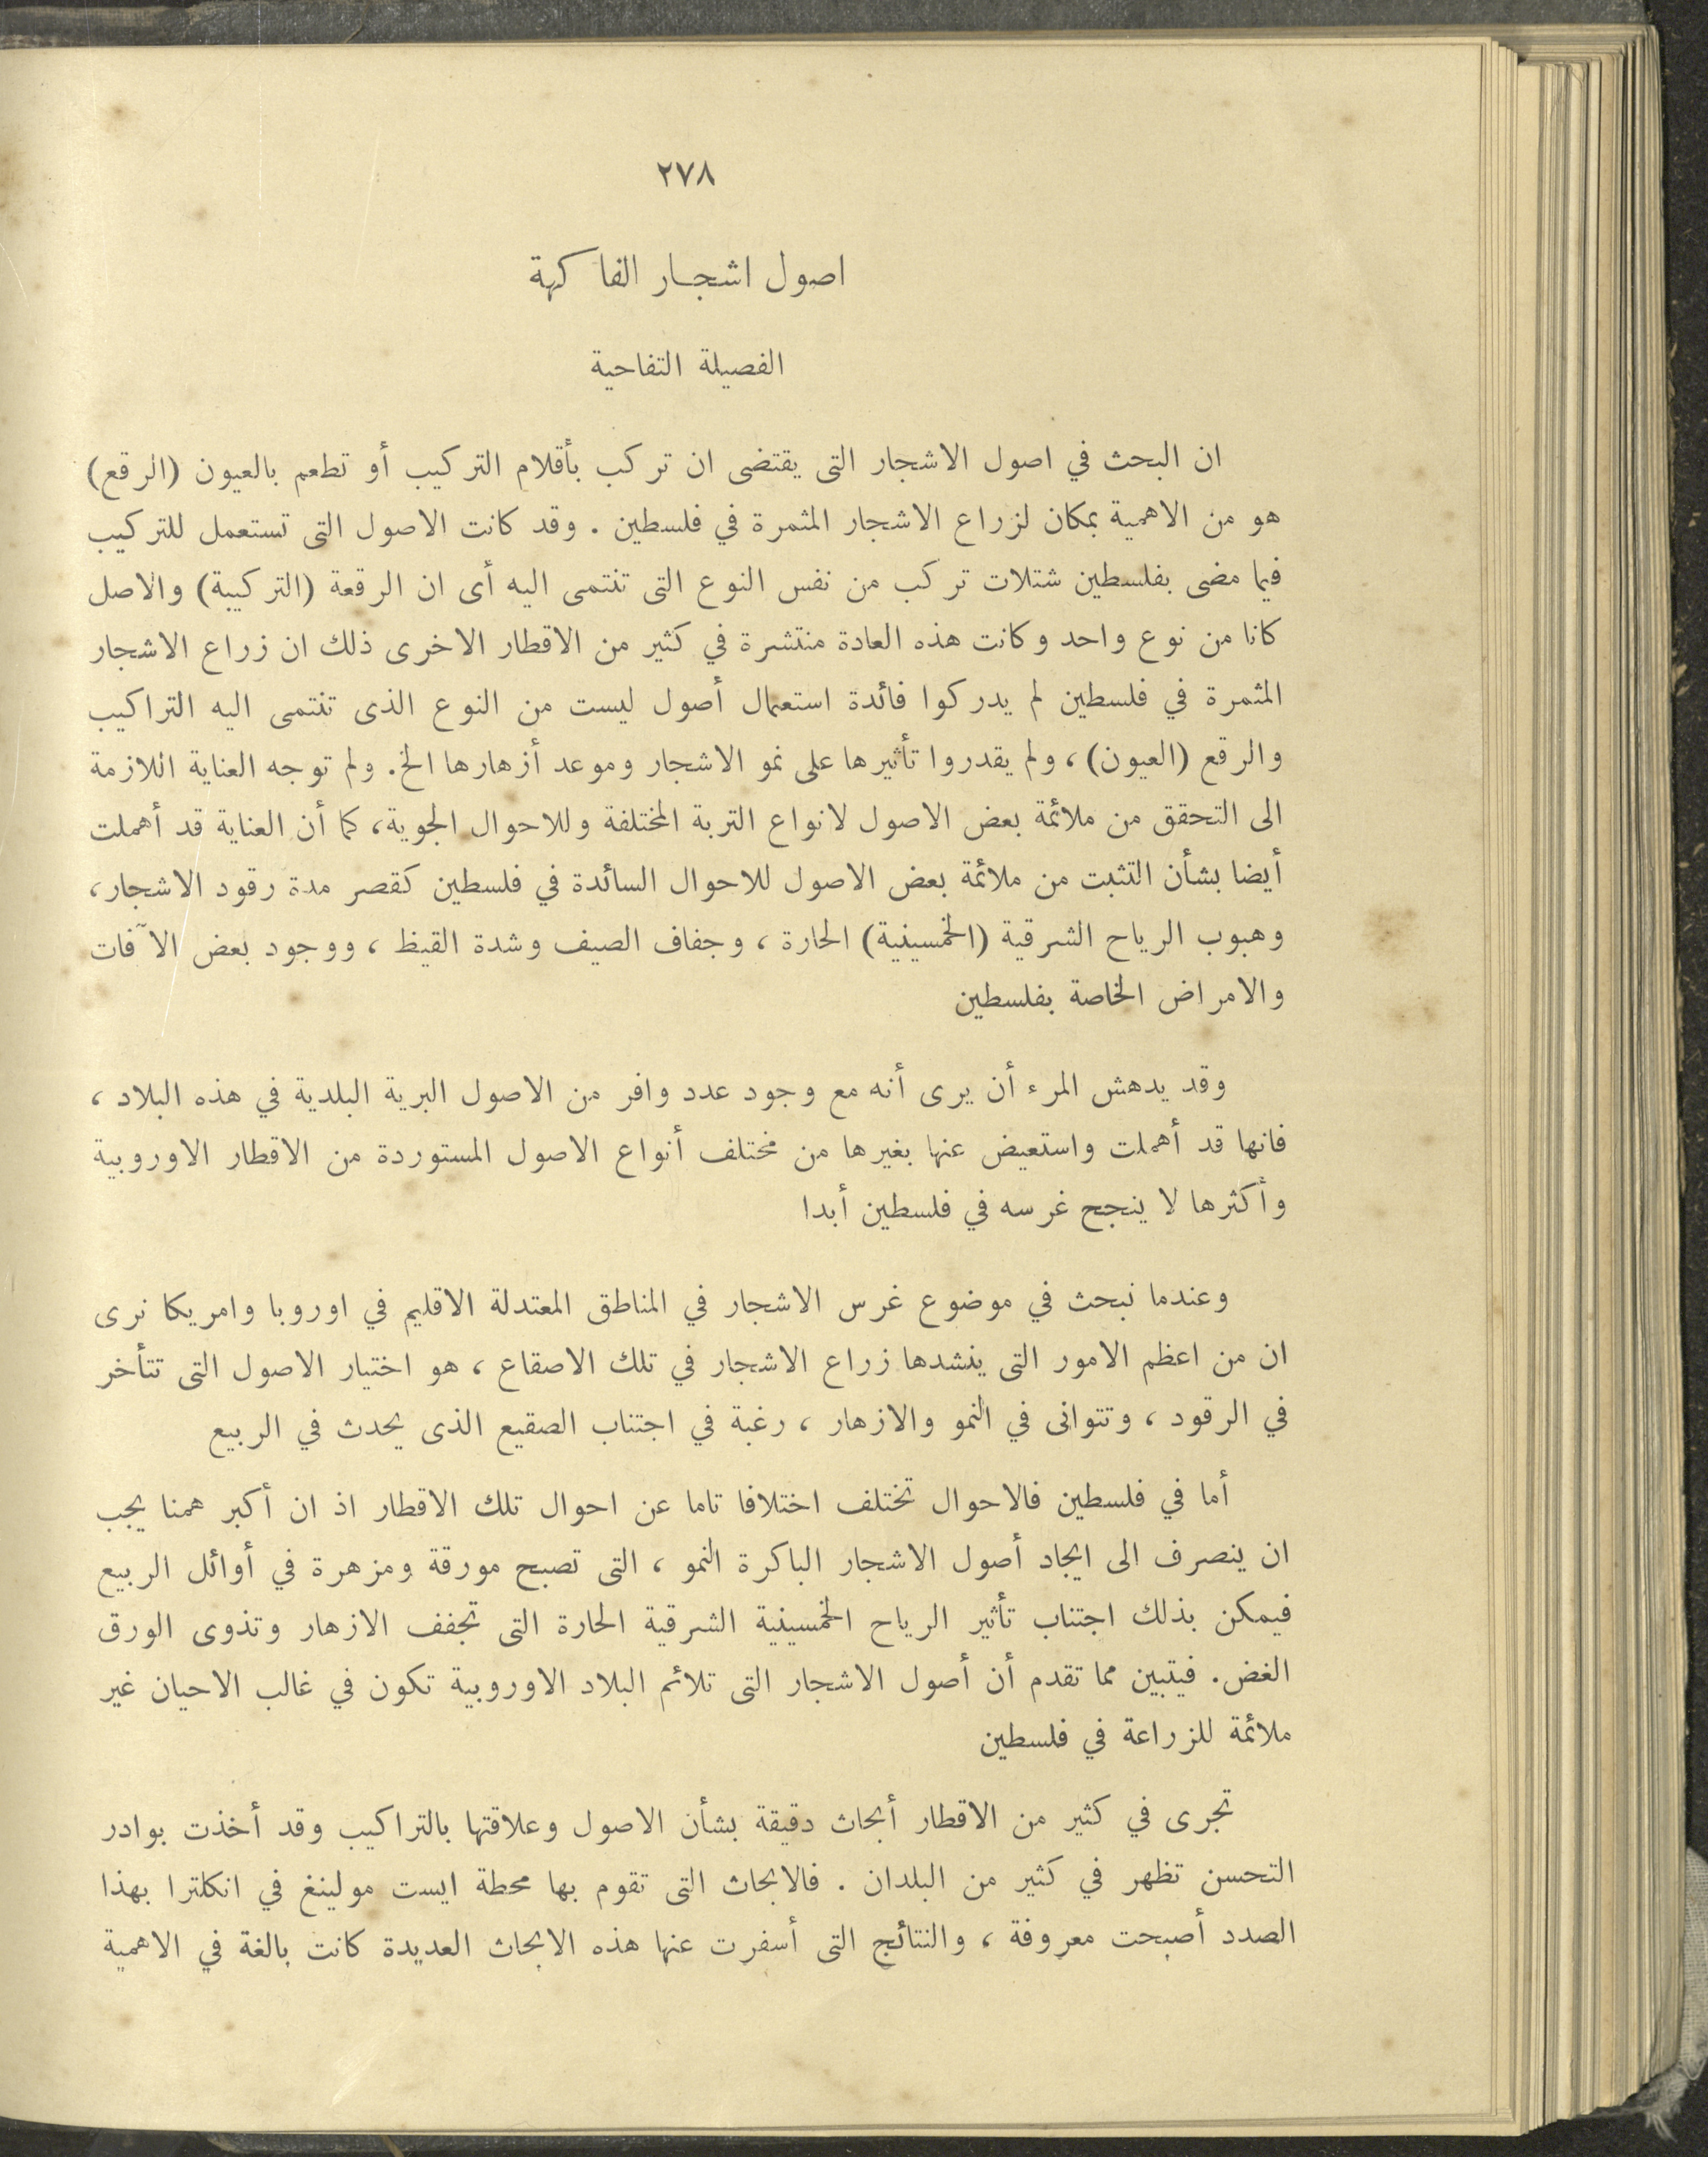 ٢٧٨
اصول اشجار الفاكهة
الفصيلة التفاحية
ان البحث في اصول الاشجار التى يقتضى ان تركب بأقلام التركيب أو تطعم بالعيون (الرقع)
هو من الاهمية بمكان لزراع الاشجار المثمرة في فلسطين . وقد كانت الاصول التى تستعمل للتركيب
فيما مضى بفلسطين شتلات تركب من نفس النوع التى تنتمى اليه أى ان الرقعة (التركيبة) والاصل
كانا من نوع واحد وكانت هذه العادة منتشرة في كثير من الاقطار الاخرى ذلك ان زراع الاشجار
المثمرة في فلسطين لم يدركوا فائدة استعمال أصول ليست من النوع الذى تنتمى اليه التراكيب
والرقع (العيون)، ولم يقدروا تأثيرها على نمو الاشجار وموعد أزهارها الخ. ولم توجه العناية اللازمة
الى التحقق من ملائمة بعض الاصول لانواع التربة المختلفة وللاحوال الجوية، كما أن العناية قد أهملت
أيضا بشأن التثبت من ملائمة بعض الاصول للاحوال السائدة في فلسطين كقصر مدة رقود الاشجار،
وهبوب الرياح الشرقية (الخمسينية) الحارة ، وجفاف الصيف وشدة القيظ ، ووجود بعض الآفات
والامراض الخاصة بفلسطين
وقد يدهش المرء أن يرى أنه مع وجود عدد وافر من الاصول البرية البلدية في هذه البلاد ،
فانها قد أهملت واستعيض عنها بغيرها من مختلف أنواع الاصول المستوردة من الاقطار الاوروبية
وأكثرها لا ينجح غرسه في فلسطين أبدا
وعندما نبحث في موضوع غرس الاشجار في المناطق المعتدلة الاقليم في اوروبا وامريكا نرى
ان من اعظم الامور التى ينشدها زراع الاشجار في تلك الاصقاع ، هو اختيار الاصول التى تتأخر
في الرقود ، وتتوانى في النمو والازهار ، رغبة في اجتناب الصقيع الذى يحدث في الربيع
أما في فلسطين فالاحوال تختلف اختلافا تاما عن احوال تلك الاقطار اذ ان أكبر همنا يجب
ان ينصرف الى ايجاد أصول الاشجار الباكرة النمو ، التى تصبح مورقة ومزهرة في أوائل الربيع
فيمكن بذلك اجتناب تأثير الرياح الخمسينية الشرقية الحارة التى تجفف الازهار وتذوى الورق
الغض. فيتبين مما تقدم أن أصول الاشجار التى تلائم البلاد الاوروبية تكون في غالب الاحيان غير
ملائمة للزراعة في فلسطين
تجرى في كثير من الاقطار أبحاث دقيقة بشأن الاصول وعلاقتها بالتراكيب وقد أخذت بوادر
التحسن تظهر في كثير من البلدان . فالابحاث التى تقوم بها محطة ايست مولينغ في انكلترا بهذا
الصدد أصبحت معروفة ، والنتائج التى أسفرت عنها هذه الابحاث العديدة كانت بالغة في الاهمية